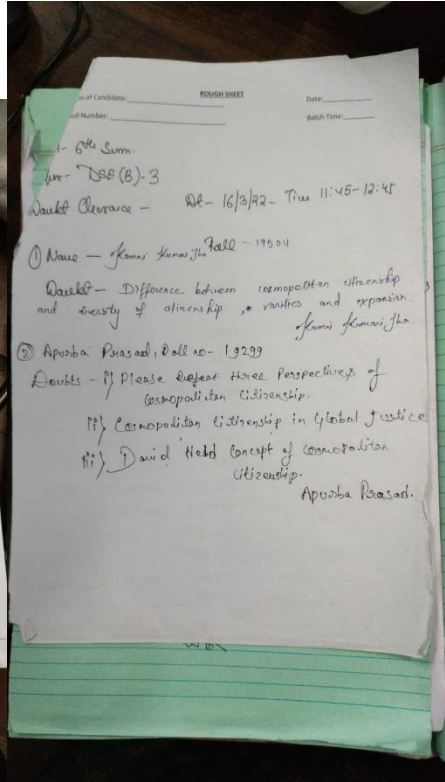 ROUGH SHEET
e of Candidate: Date:
oll Number: Batch Time:
- 6th Sem.
- DSE (B)-3
Doubt Clearance - Dt- 16/3/22 - Time 11:45-12:45
① Name — Kumari Jha Roll - 19504
Doubt - Difference between cosmopolitan citizenship
and diversity of citizenship, varities and expansion.
Kumari Jha
② Apurba Prasad, Roll no- 19299
Doubts - i) Please Repeat three Perspectives of
Cosmopolitan Citizenship.
ii) Cosmopolitan Citizenship in Global Justice
iii) David Held Concept of cosmopolitan
citizenship.
Apurba Prasad.